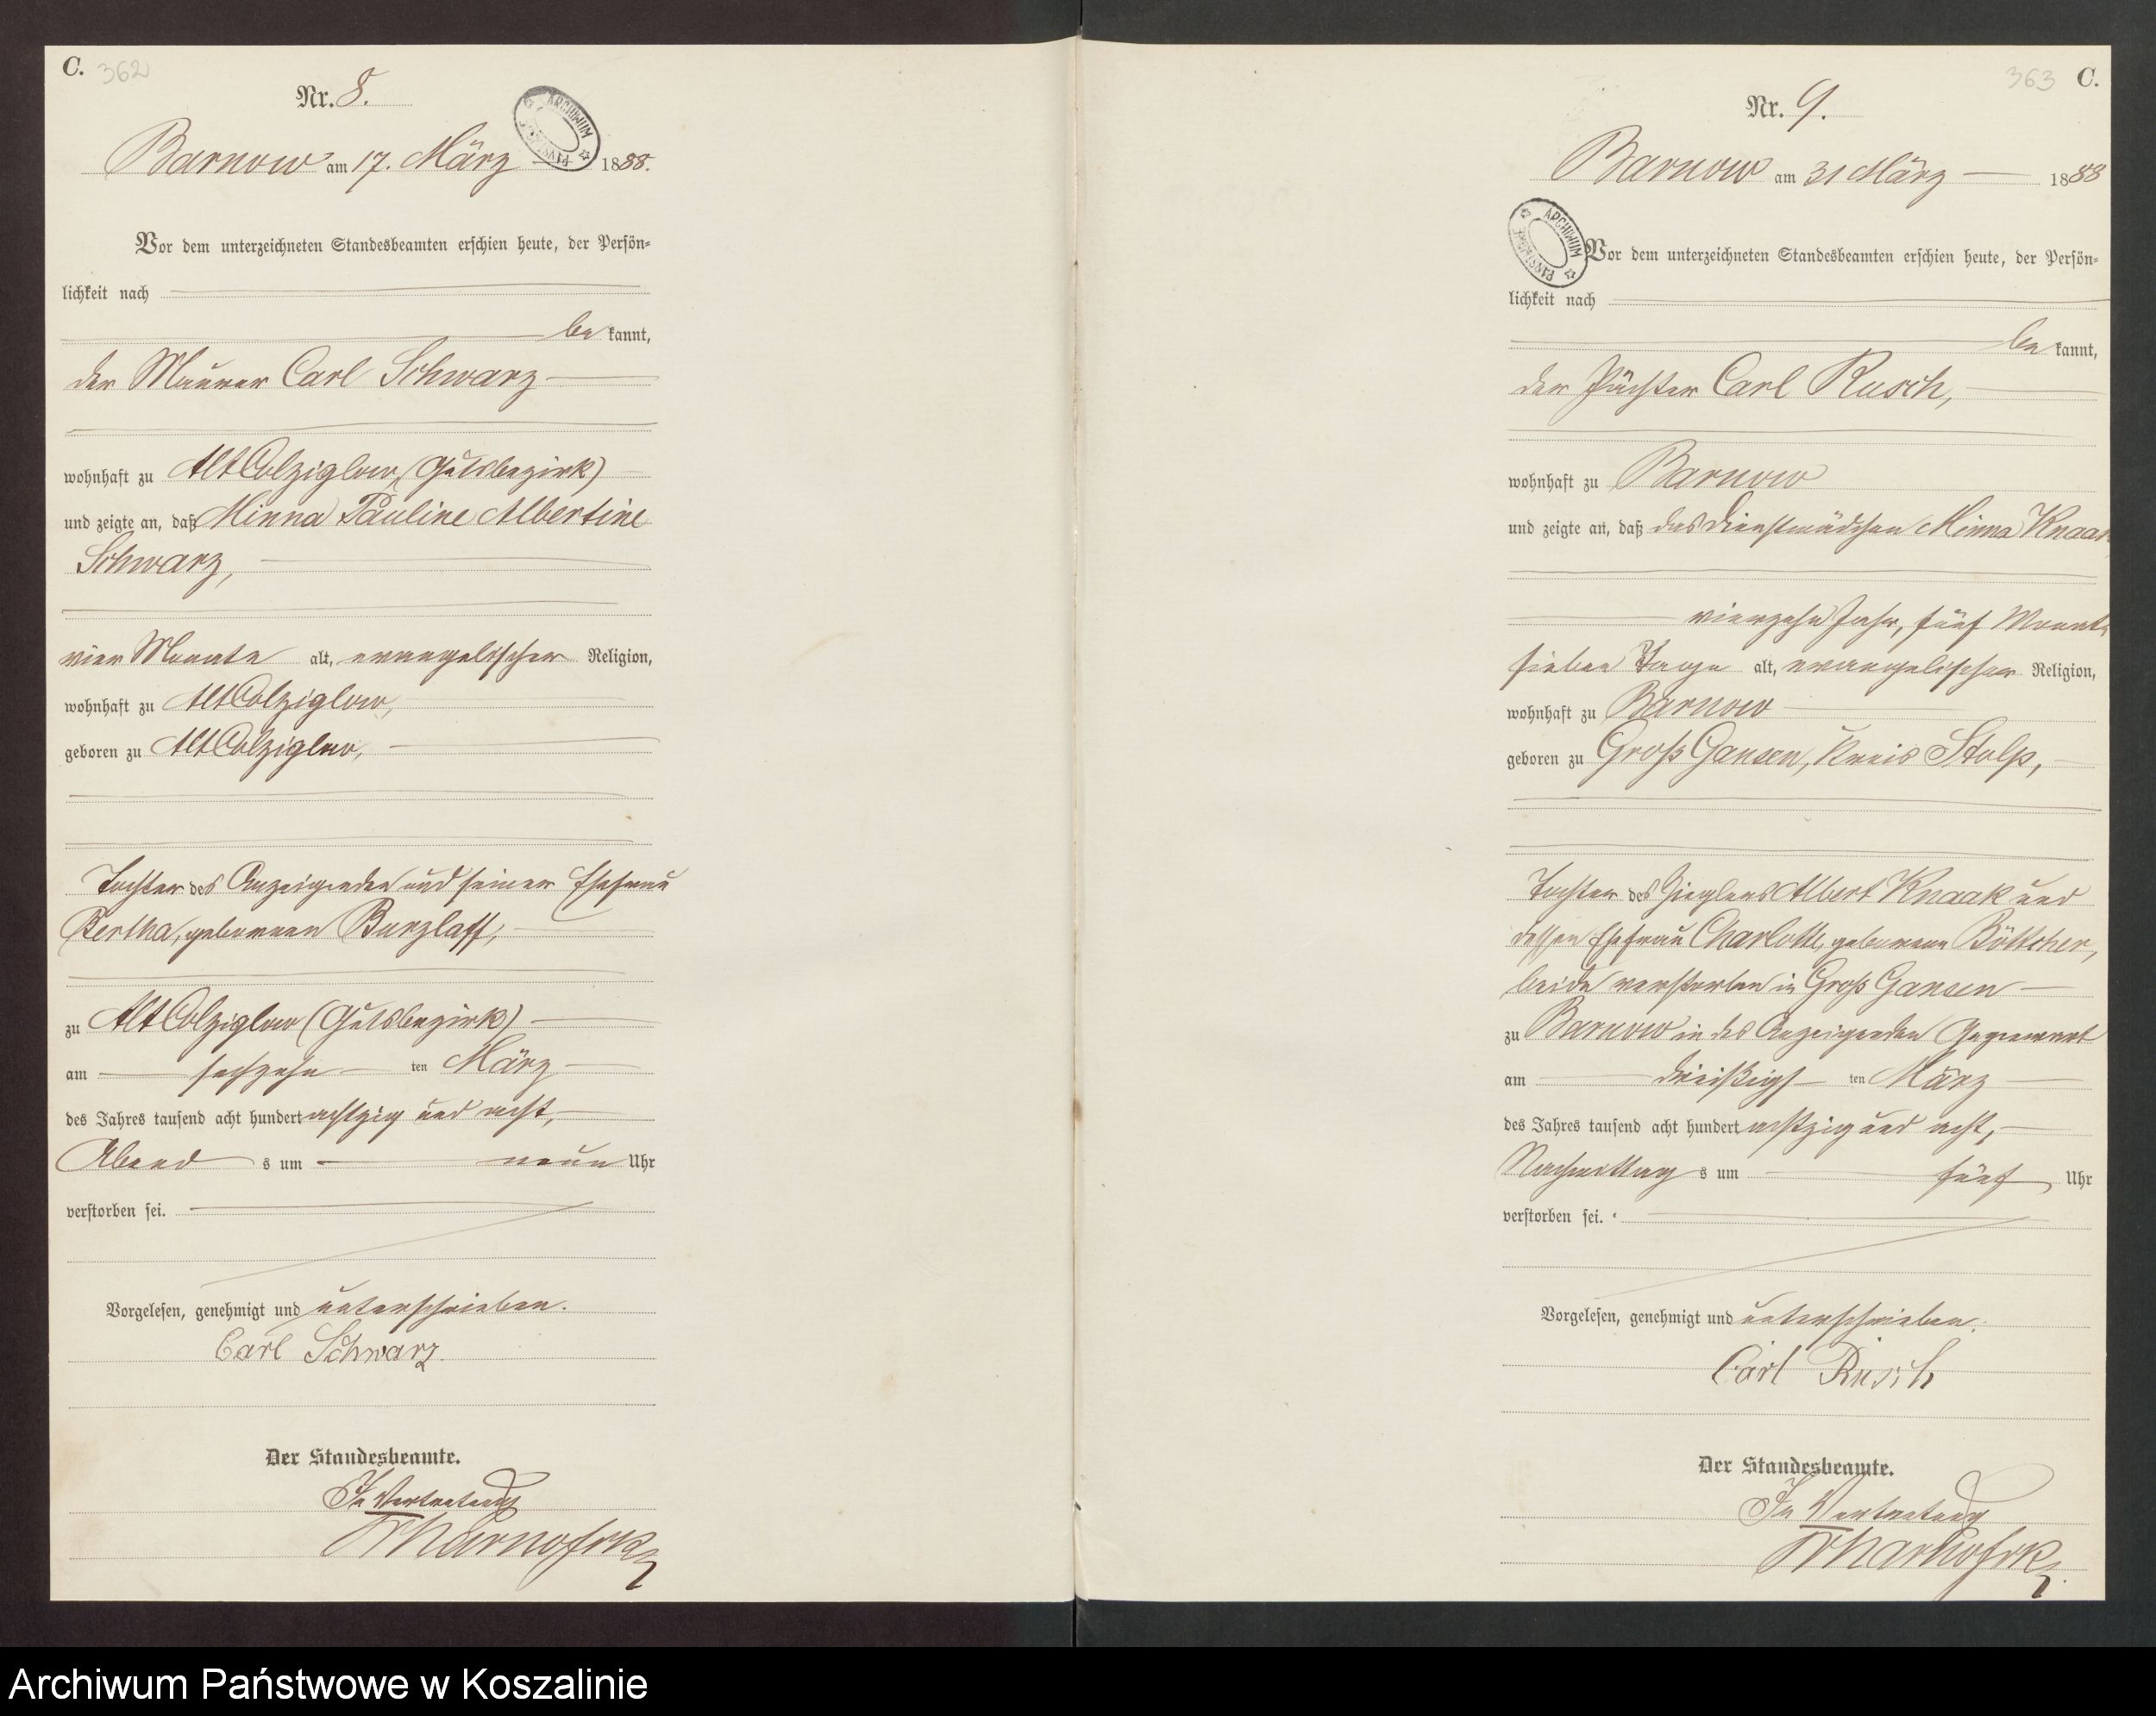 C. 362
Nr. 8.
ARCHIWUM
Barnow am 17. März 1888.
Vor dem unterzeichneten Standesbeamten erschien heute, der Persön-
lichkeit nach
be kannt,
der Maurer Carl Schwarz
wohnhaft zu Alt Colziglow (Gutsbezirk)
und zeigte an, daß Minna Pauline Albertine
Schwarz,
vier Monate alt, evangelischer Religion,
wohnhaft zu Alt Colziglow,
geboren zu Alt Colziglow,
Tochter des Anzeigenden und seiner Ehefrau
Bertha, geborenen Burzlaff,
zu Alt Colziglow (Gutsbezirk)
am sechzehn ten März
des Jahres tausend acht hundert achtzig und acht,
Abend s um neun Uhr
verstorben sei.
Vorgelesen, genehmigt und unterschrieben.
Carl Schwarz.
Der Standesbeamte.
In Vertretung
363 C.
Nr. 9.
Barnow am 31 März 1888
ARCHIWUM
Vor dem unterzeichneten Standesbeamten erschien heute, der Persön-
lichkeit nach
be kannt,
der Pächter Carl Rusch,
wohnhaft zu Barnow
und zeigte an, daß das Dienstmädchen Minna Knaak
vierzehn Jahr, fünf Monate
sieben Tage alt, evangelischer Religion,
wohnhaft zu Barnow
geboren zu Groß Gansen, Kreis Stolp,
Tochter des Zieglers Albert Knaak und
dessen Ehefrau Charlotte, geborene Böttcher,
beide verstorben in Groß Gansen
zu Barnow in des Anzeigenden Gegenwart
am dreißigs ten März
des Jahres tausend acht hundert achtzig und acht,
Nachmittag s um fünf Uhr
verstorben sei.
Vorgelesen, genehmigt und unterschrieben.
Carl Rusch
Der Standesbeamte.
In Vertretung
Archiwum Państwowe w Koszalinie